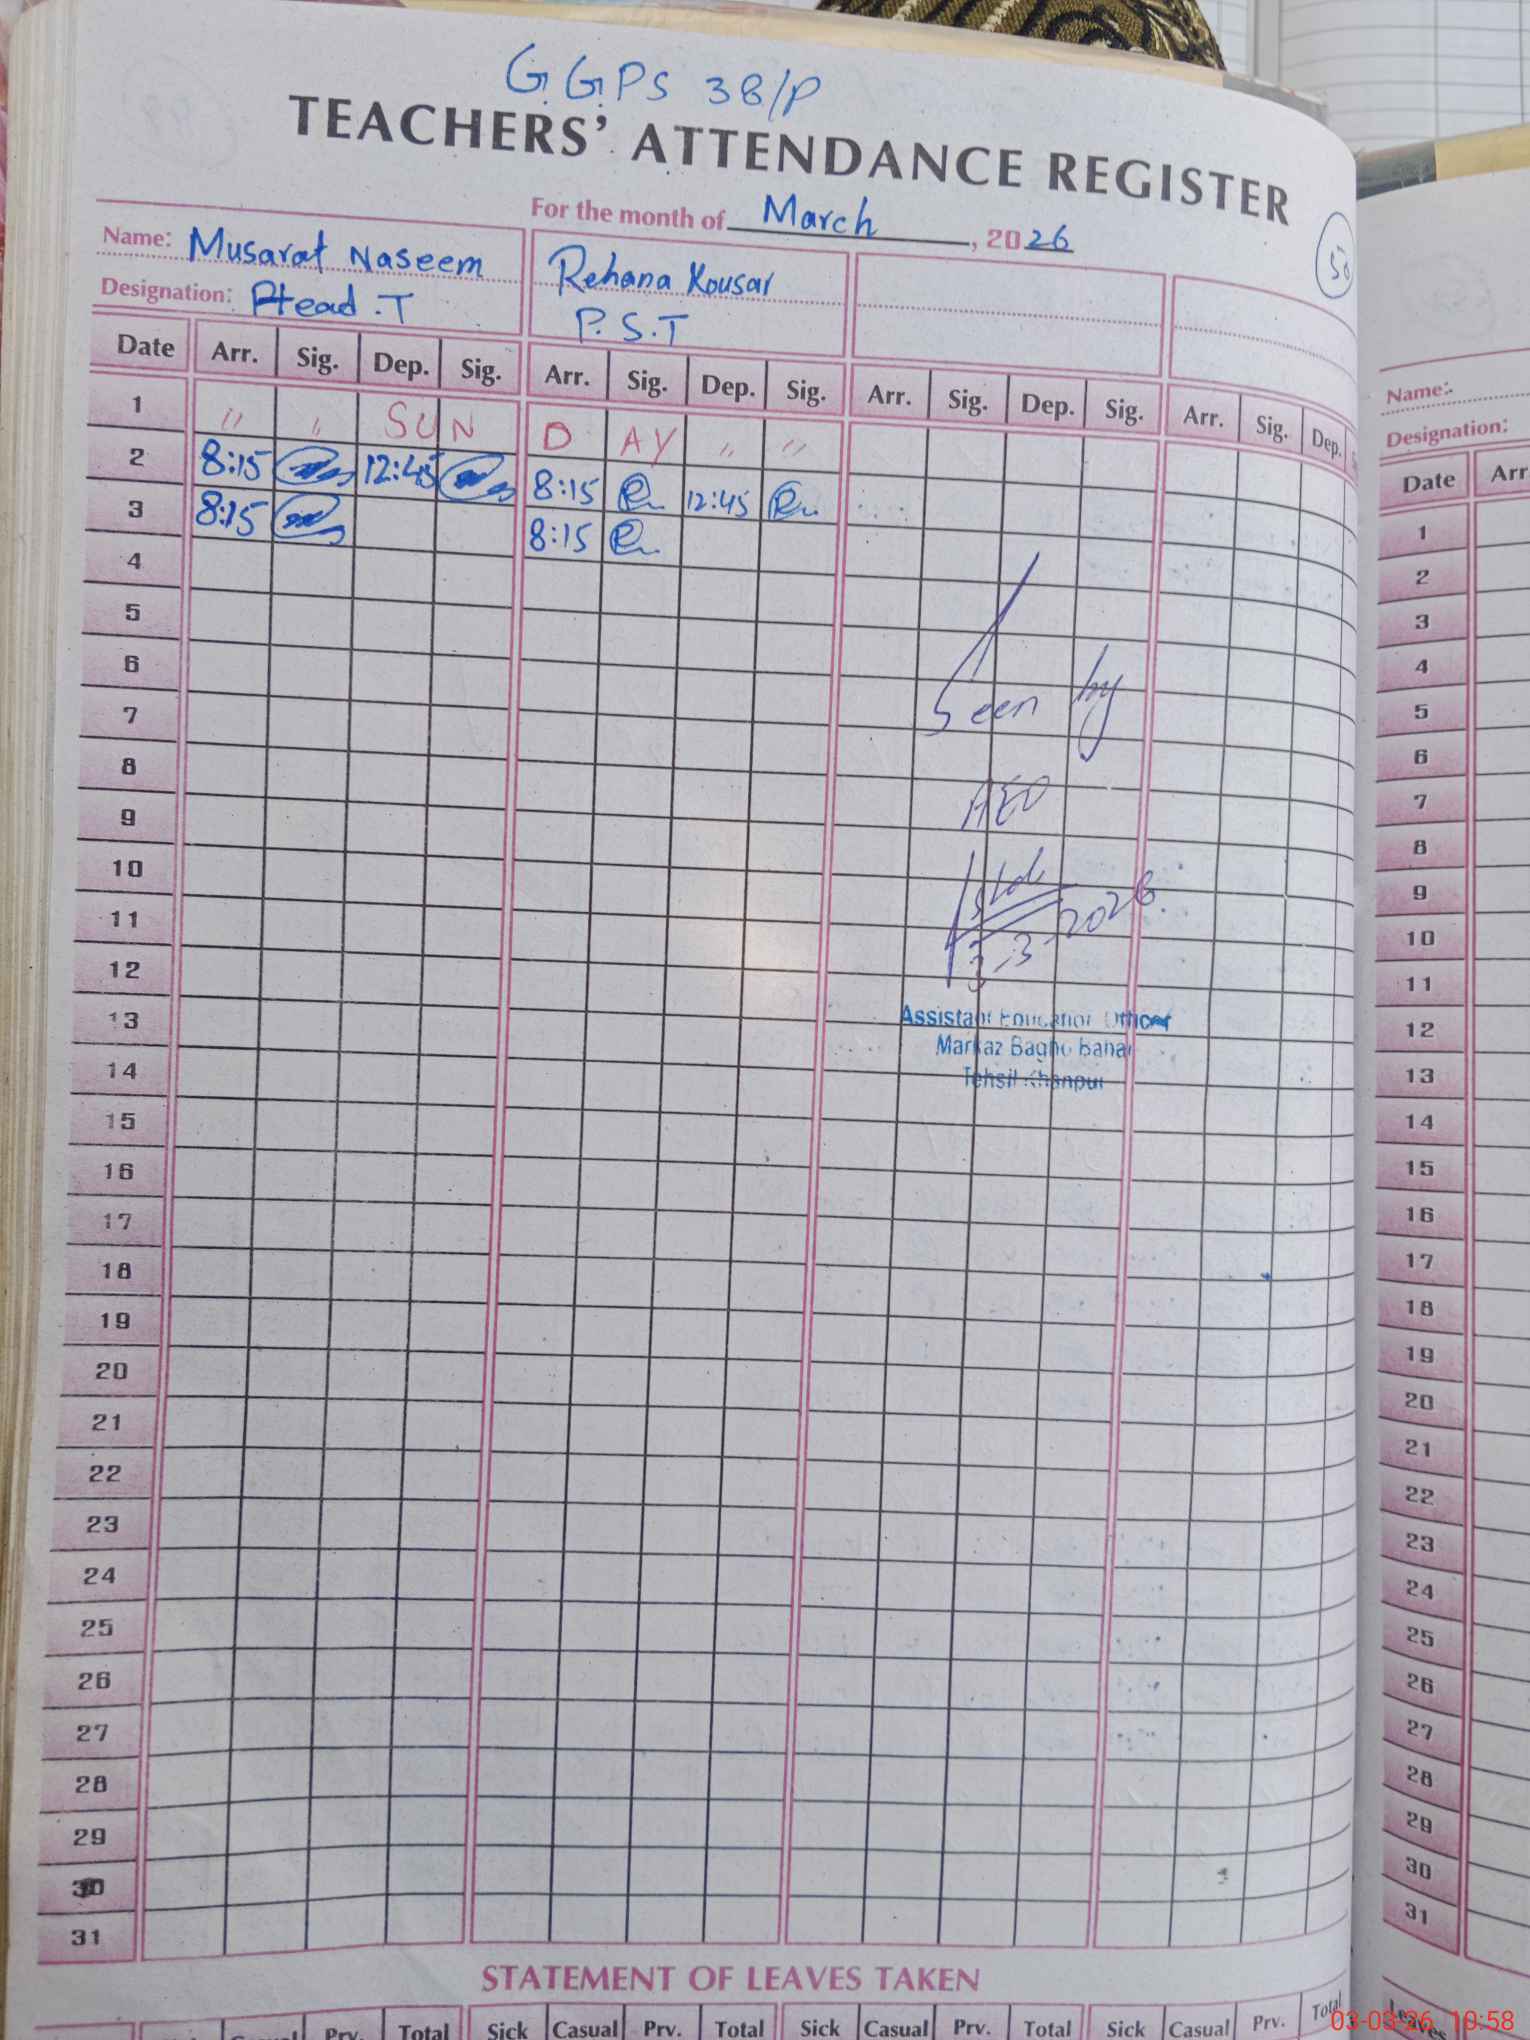 G.G.PS 38/P
TEACHERS' ATTENDANCE REGISTER
For the month of March, 2026
50
Name: Musarat Naseem Rehana Kousar
Designation: Head.T P.S.T
Date Arr. Sig. Dep. Sig. Arr. Sig. Dep. Sig. Arr. Sig. Dep. Sig. Arr. Sig. Dep.
1 " " SUN D AY " "
2 8:15 12:45 8:15 12:45
3 8:15 8:15
4
5
6
7
8
9
10
11
12
13
14
15
16
17
18
19
20
21
22
23
24
25
26
27
28
29
30
31
Seen by
AEO
3-3-2026.
Assistant Education Officer
Markaz Bagho Bahar
Tehsil Khanpur
STATEMENT OF LEAVES TAKEN
Prv. Total Sick Casual Prv. Total Sick Casual Prv. Total Sick Casual Prv. Total
Name:-
Designation:
Date Arr
1
2
3
4
5
6
7
8
9
10
11
12
13
14
15
16
17
18
19
20
21
22
23
24
25
26
27
28
29
30
31
03-03-26 10:58